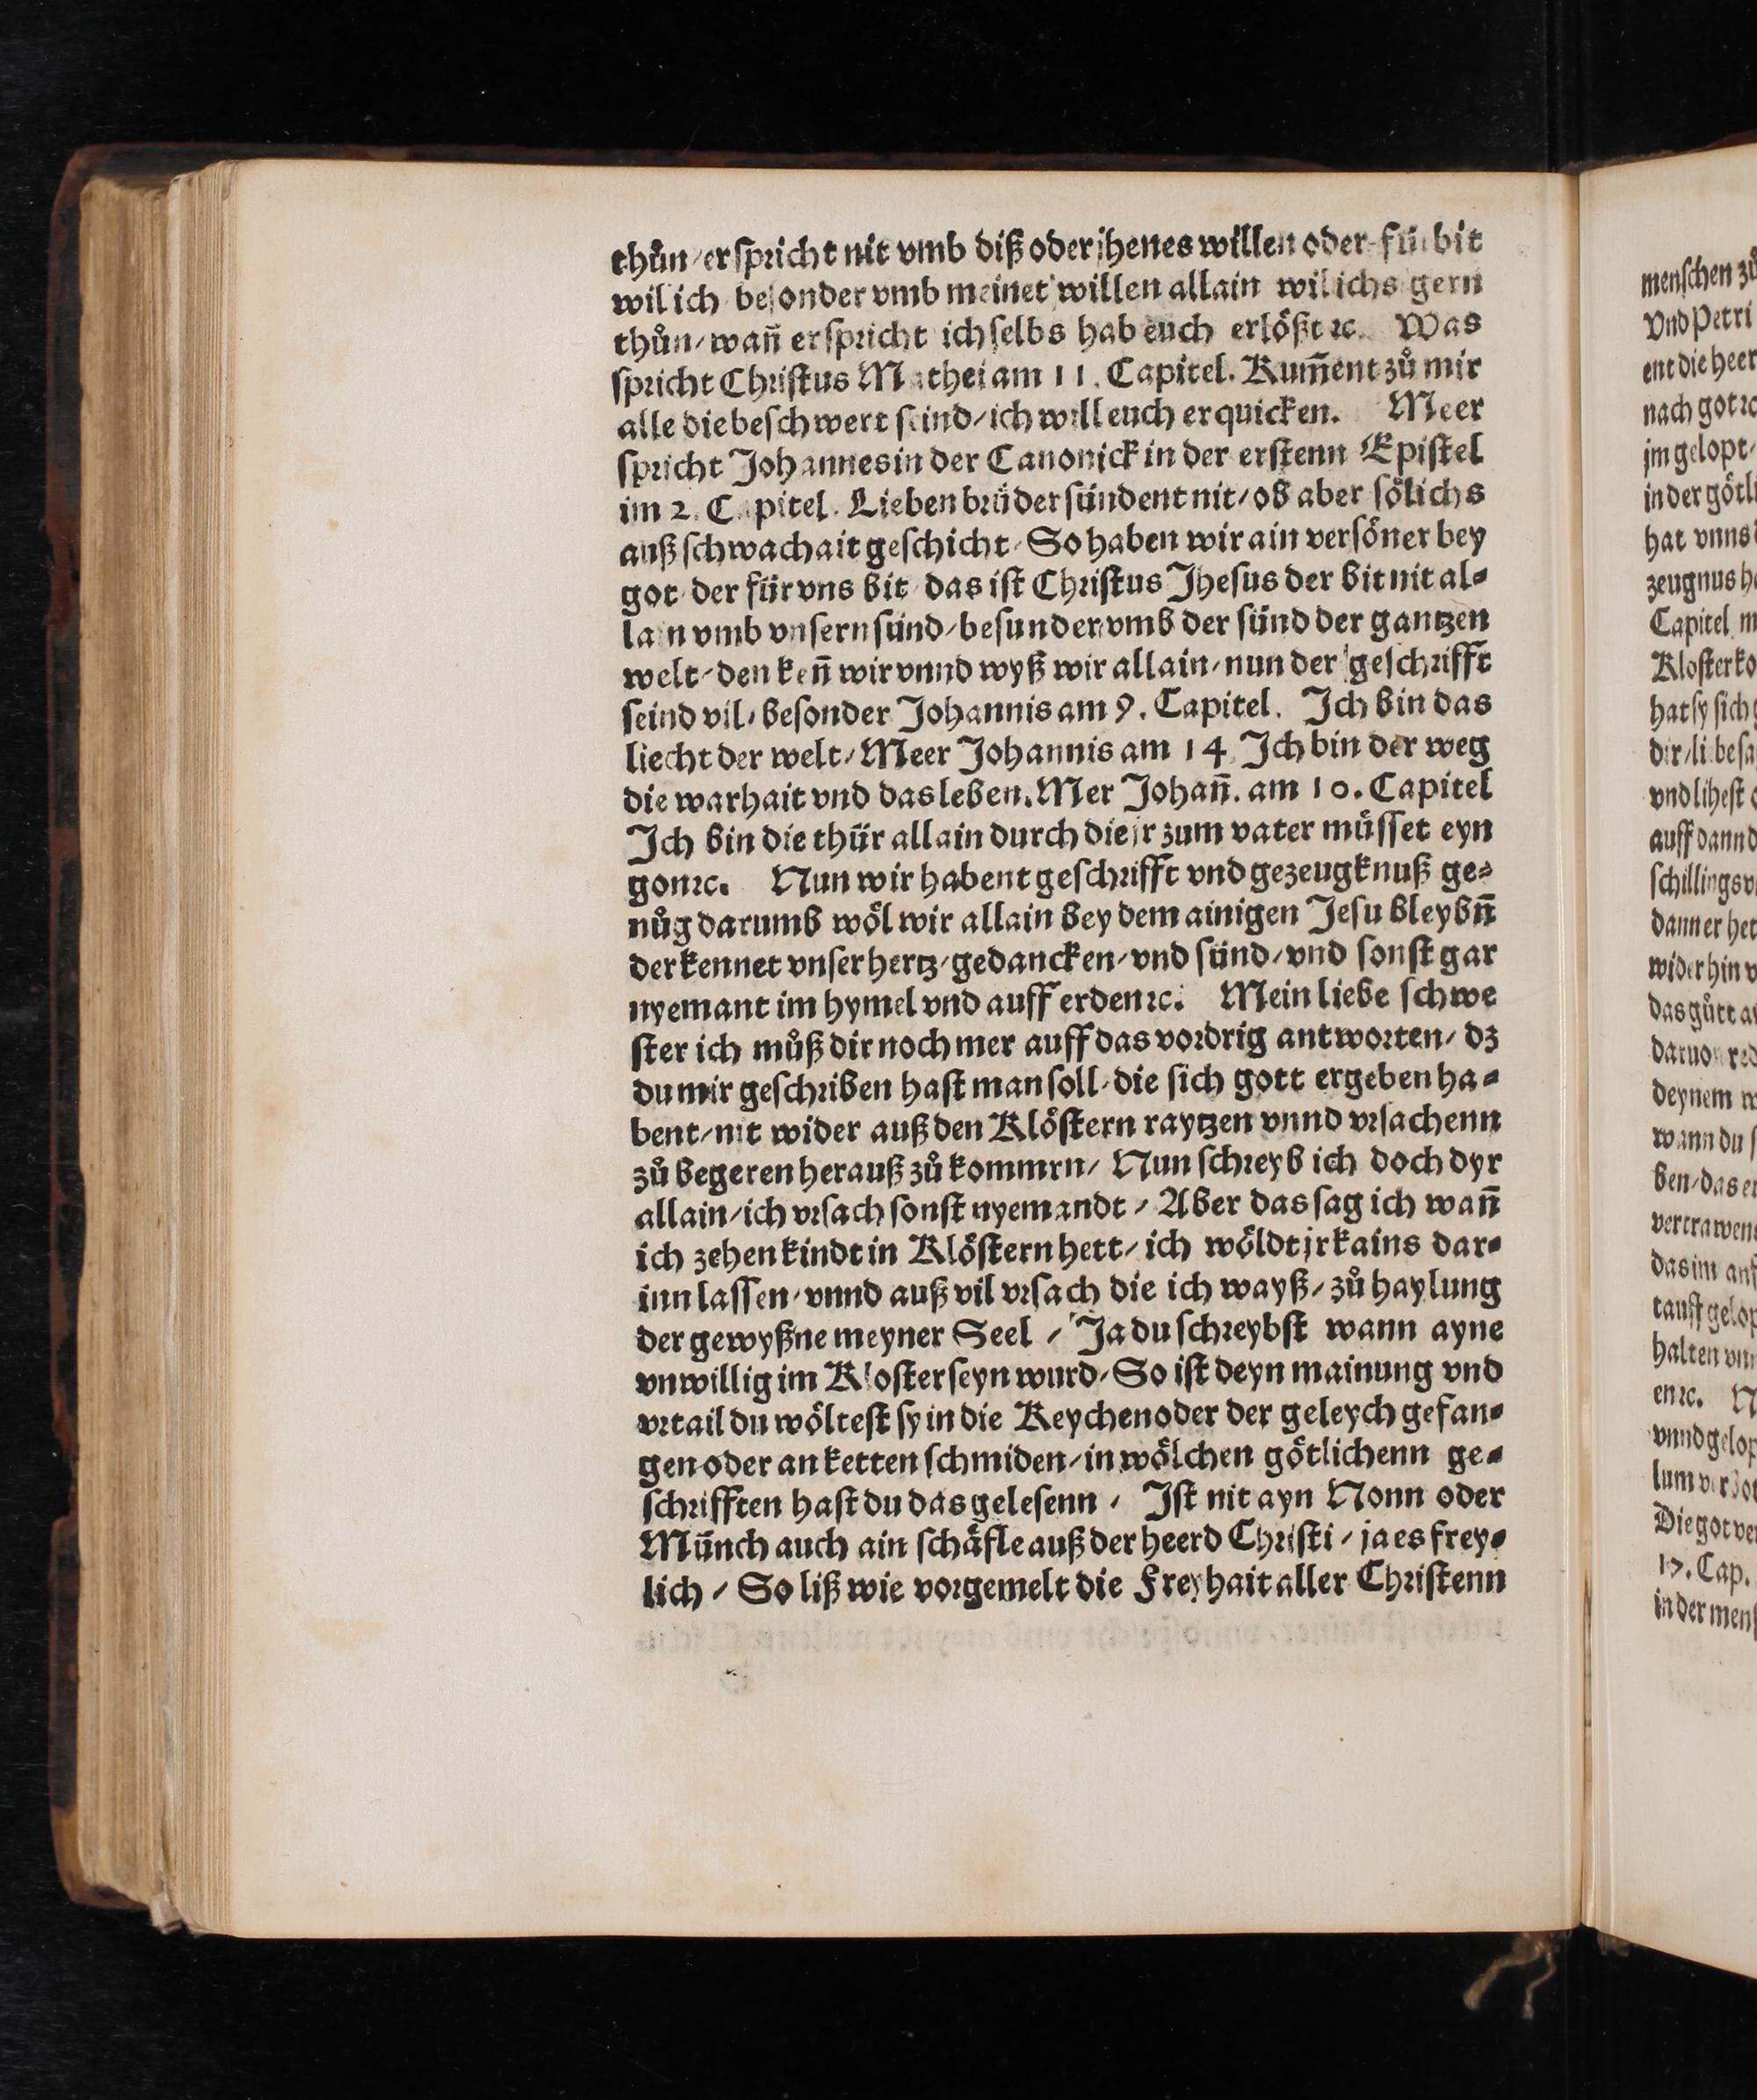 thůn / er spricht nit vmb diß oder jhenes willen oder fürbit
wil ich besonder vmb meinet willen allain wil ichs gern
thůn / wañ er spricht ich selbs hab euch erlößt ꝛc. Was
spricht Christus Mathei am 11. Capitel. Kum̃ent zů mir
alle die beschwert seind / ich will euch erquicken. Meer
spricht Johannes in der Canonick in der erstenn Epistel
im 2. Capitel. Lieben brüder sündent nit / ob aber sölichs
auß schwachait geschicht / So haben wir ain versöner bey
got der für vns bit das ist Christus Jhesus der bit nit al⸗
lain vmb vnsern sünd / besunder vmb der sünd der gantzen
welt / den keñ wir vnnd wyß wir allain / nun der geschrifft
seind vil / besonder Johannis am 9. Capitel. Ich bin das
liecht der welt / Meer Johannis am 14. Ich bin der weg
die warhait vnd das leben. Mer Johañ. am 10. Capitel
Ich bin die thür allain durch die jr zum vater müsset eyn
gon ꝛc. Nun wir habent geschrifft vnd gezeugknuß ge⸗
nůg darumb wöl wir allain bey dem ainigen Jesu bleybñ
der kennet vnser hertz / gedancken / vnd sünd / vnd sonst gar
nyemant im hymel vnd auff erden ꝛc. Mein liebe schwe
ster ich můß dir noch mer auff das vordrig antworten / dz
du mir geschriben hast man soll / die sich gott ergeben ha⸗
bent / nit wider auß den Klöstern raytzen vnnd vrsachenn
zů begeren herauß zů kommrn / Nun schreyb ich doch dyr
allain / ich vrsach sonst nyemandt / Aber das sag ich wañ
ich zehen kindt in Klöstern hett / ich wöldt jr kains dar⸗
inn lassen / vnnd auß vil vrsach die ich wayß / zů haylung
der gewyßne meyner Seel / Ja du schreybst wann ayne
vnwillig im Kloster seyn wurd / So ist deyn mainung vnd
vrtail du wöltest sy in die Keychen oder der geleych gefan⸗
gen oder an ketten schmiden / in wölchen götlichenn ge⸗
schrifften hast du das gelesenn / Ist nit ayn Nonn oder
Münch auch ain schäfle auß der heerd Christi / ja es frey⸗
lich / So liß wie vorgemelt die Freyhait aller Christenn
menschen zů
Vnd Petri
ent die heer
nach got ꝛc
jm gelopt /
in der götli
hat vnns
zeugnus h
Capitel m
Kloster ko
hat sy sich
dir / li besa
vnd lihest
auff dann d
schillings v
dann er het
wider hin v
das gůtt a
daruon red
deynem w
wann du s
ben / das e
vertrawen
das im anf
tauft gelop
halten vnn
en ꝛc. N
vnnd gelop
lum verbot
Die got ve
17. Cap.
in der mens